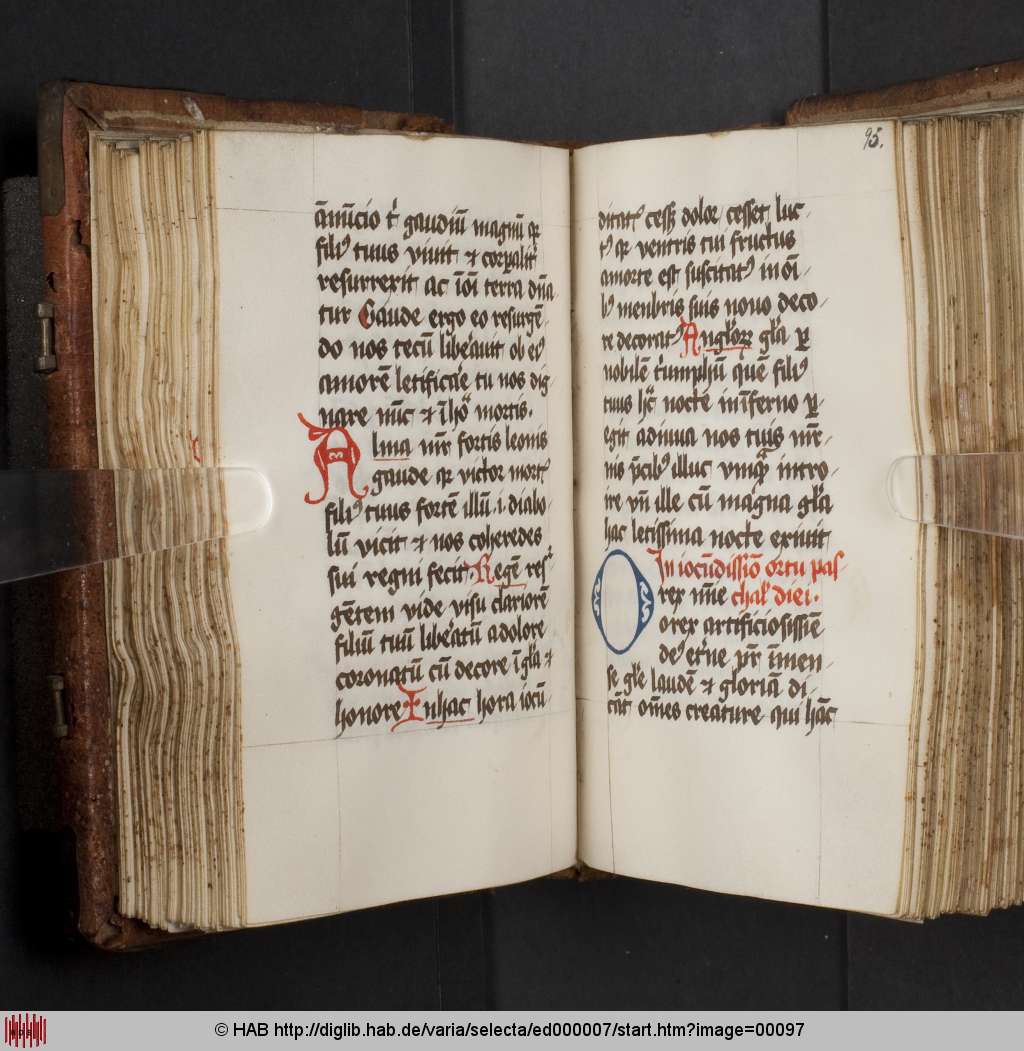 ānūcio t' gaudiū magnū qꝛ
filiꝰ tuus viuit ⁊ corꝑalit'
resurrexit ac īōi terra dn̄a
tur Gaude ergo eo resurgē-
do nos tecū lib'auit ob eiꝰ
amorē letifica'e tu nos dig
nare nūc ⁊ ī hoͣ mortis.
Alma mr̄ fortis leonis
gaude qꝛ victor mortꝭ
filiꝰ tuus fortē illū .i. diabo
lū vicit ⁊ nos coheredes
sui regni fecit Regē res'
gētem vide visu clariorē
filiū tuū lib'atū a dolore
coronatū cū decore ī gl'a ⁊
honore Inhac hora iocū-
95.
ditatꝭ cess; dolor cesset luc-
tꝰ qꝛ ventris tui fructus
amorte est suscitatꝰ in oī-
bꝰ menbris suis nouo deco-
re decoratꝰ Anglorꝝ gl'a ꝑ
nobilē t'umphū quē filiꝰ
tuus hͣc nocte in īferno ꝑ-
egit adiuua nos tuis mr̄-
nis p̄cibꝰ illuc vnqͣ intro-
ire vn̄ ille cū magna gl'a
hac letissima nocte exiuit
In iocūdissīo ortu pas-
rex nīne chal' diei.
O orex artificiosissīe
deꝰ et'ne pr̄ īmen-
se gl'e laudē ⁊ gloriā di-
cāt om̄es creature qui hāc
© HAB http://diglib.hab.de/varia/selecta/ed000007/start.htm?image=00097